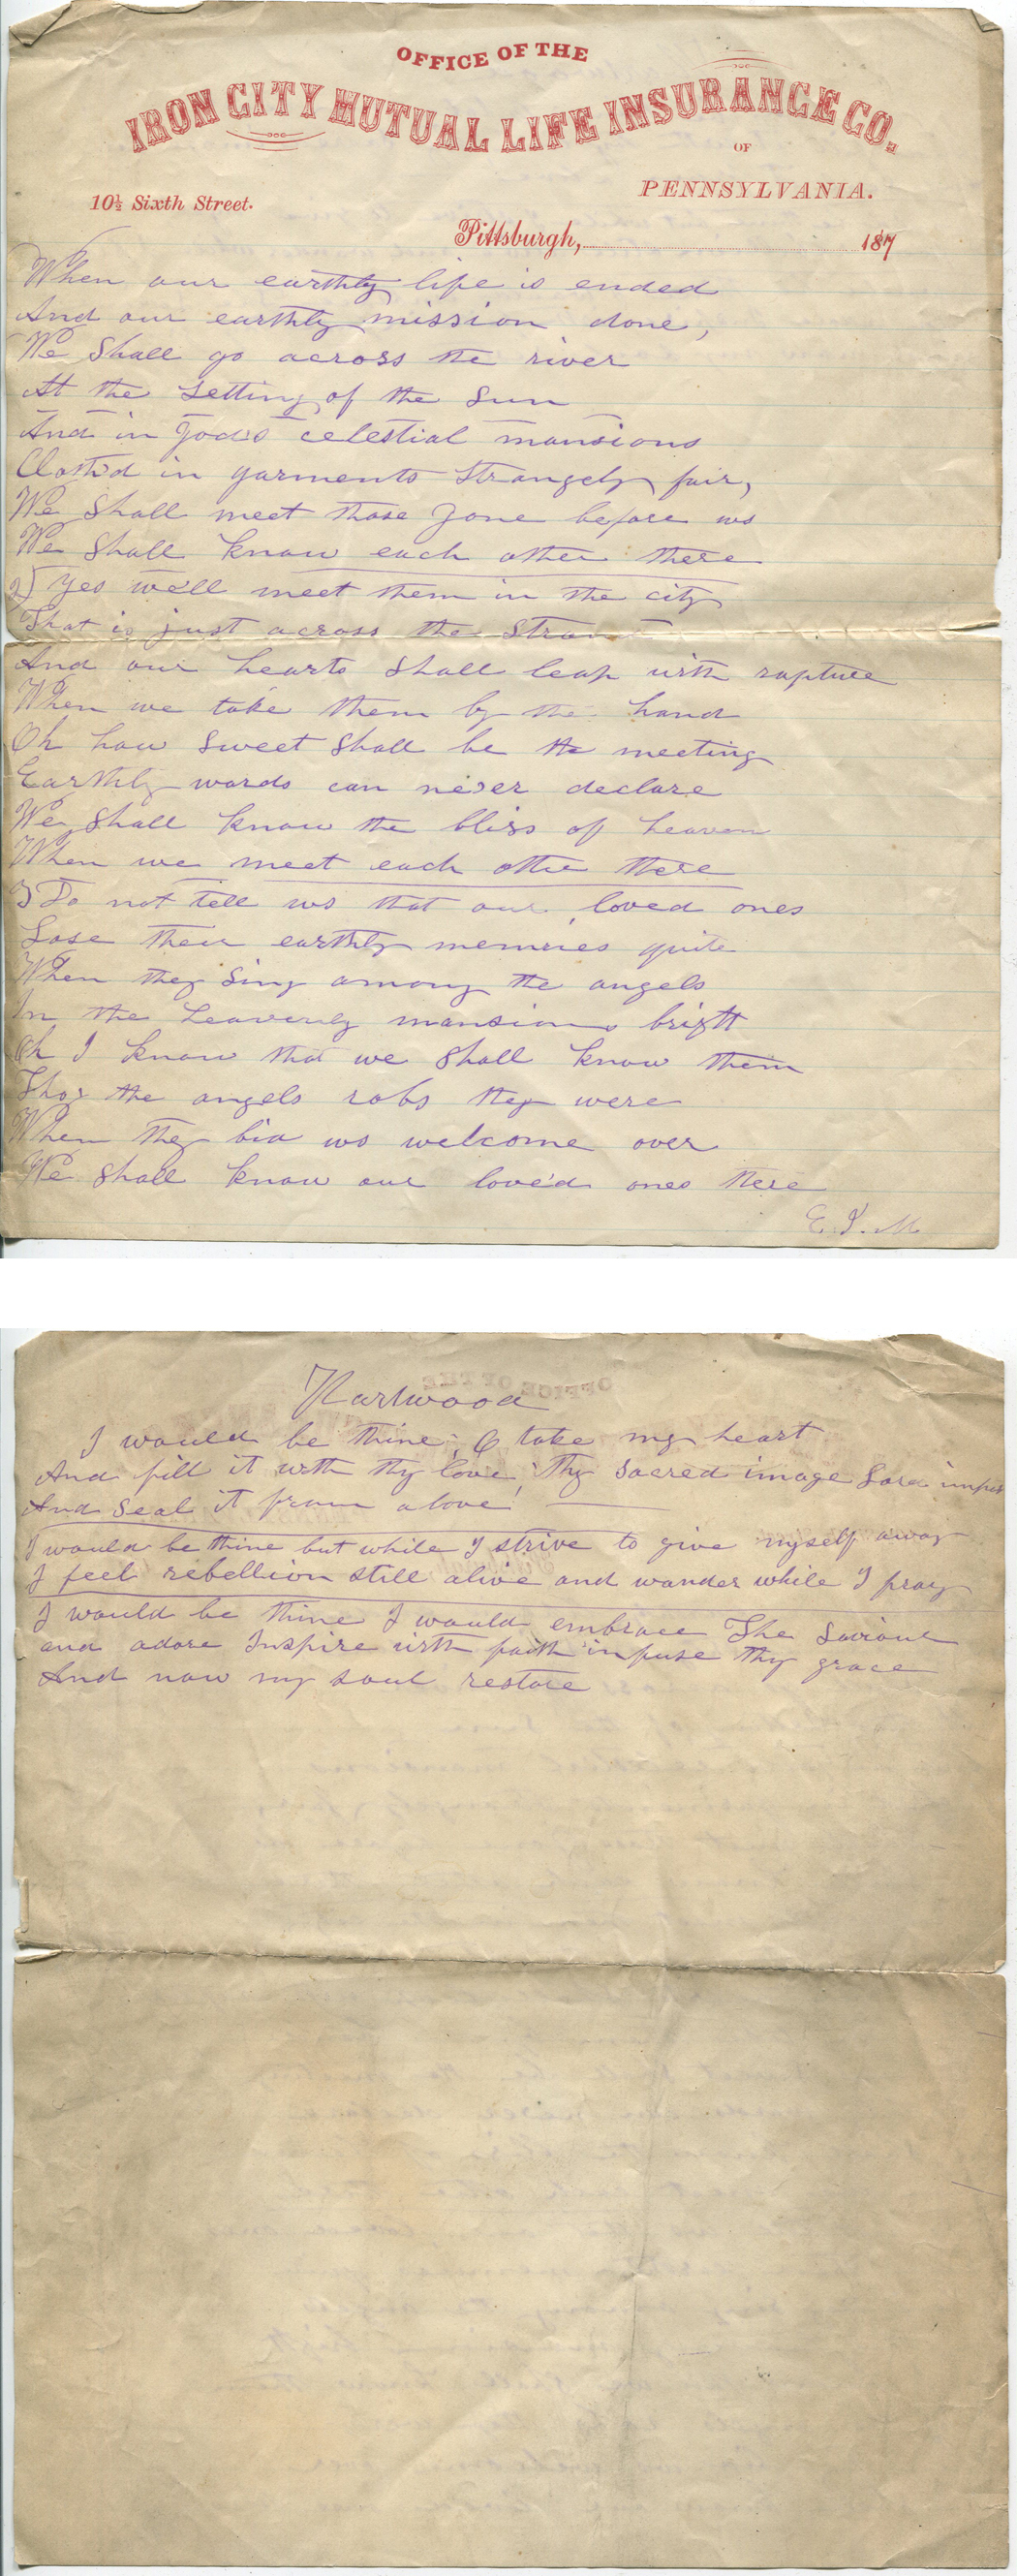 OFFICE OF THE
IRON CITY MUTUAL LIFE INSURANCE CO.
OF
PENNSYLVANIA.
10½ Sixth Street.
Pittsburgh, 187
When our earthly life is ended
And our earthly mission done,
We Shall go across the river
At the setting of the Sun
And in God's celestial mansions
Cloth'd in garments strangely fair,
We Shall meet those gone before us
We Shall know each other there
2) Yes we'll meet them in the city
That is just across the Strand
And our hearts Shall leap with rapture
When we take them by the hand
Oh how sweet shall be the meeting
Earthly words can never declare
We shall know the bliss of heaven
When we meet each other there
3 Do not tell us that our loved ones
Lose their earthly memries quite
When they Sing among the angels
In the heavenly mansions bright
Oh I know that we shall know them
Tho the angels robs they were
When they bid us welcome over
We shall know our love'd ones there
E. I. M
I would be thine; O take my heart
And fill it with thy love, Thy sacred image Lord
And seal it from above
I would be thine but while I strive to give myself away
I feel rebellion still alive and wander while I pray
I would be thine I would embrace The Saviour
and adore Inspire with faith infuse thy grace
And now my soul restore